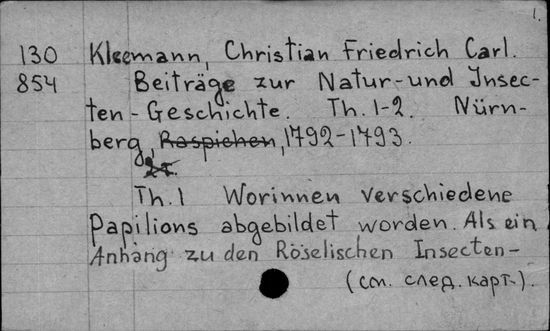 1.
130 Kleemann, Christian Friedrich Carl.
854 Beiträge zur Natur-und Insec-
ten-Geschichte. Th. 1-2. Nürn-
berg, Raspichen, 1792-1793.
Th. 1 Worinnen verschiedene
Papilions abgebildet worden. Als ein
Anhang zu den Röselischen Insecten-
(см. след. карт.).